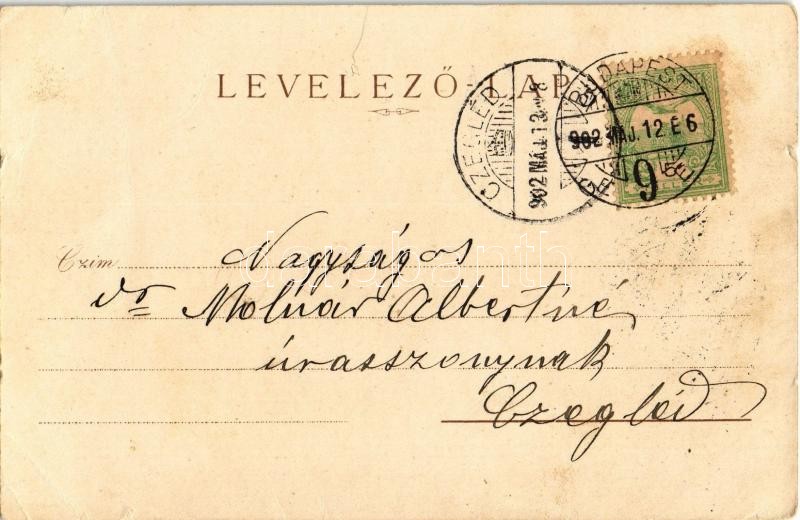 LEVELEZŐ-LAP
CZEGLÉD
902 MÁJ. 13
BUDAPEST
902 MÁJ. 12 E 6
9
Czim
Nagyságos
dr Molnár Albertné
úrasszonynak
Czegléd
darabanth